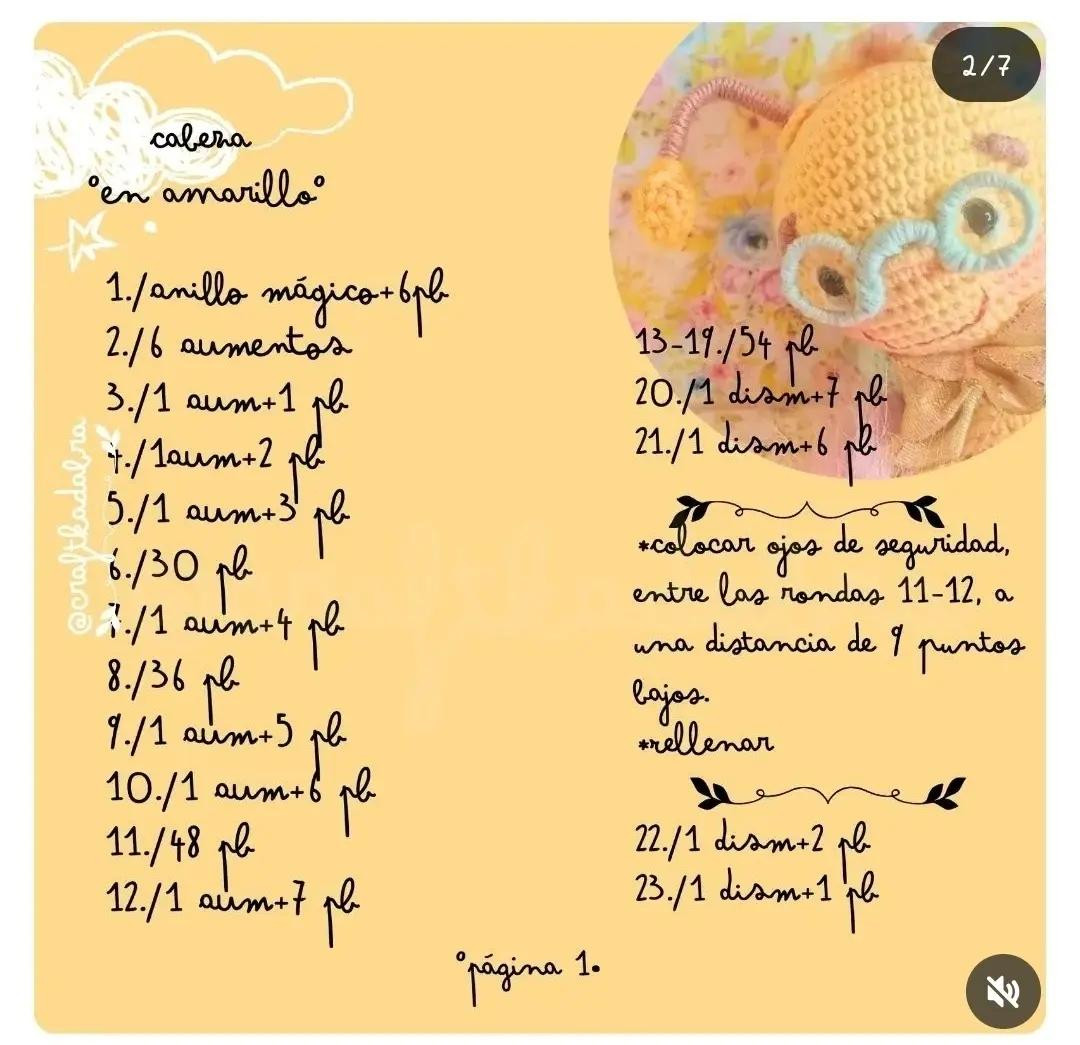 2/7
cabeza
°en amarillo°
1./anillo mágico+6pb
2./6 aumentos
3./1 aum+1 pb
4./1aum+2 pb
5./1 aum+3 pb
6./30 pb
7./1 aum+4 pb
8./36 pb
9./1 aum+5 pb
10./1 aum+6 pb
11./48 pb
12./1 aum+7 pb
@craftkadabra
13-19./54 pb
20./1 dism+7 pb
21./1 dism+6 pb
*colocar ojos de seguridad,
entre las rondas 11-12, a
una distancia de 9 puntos
bajos.
*rellenar
22./1 dism+2 pb
23./1 dism+1 pb
°página 1.